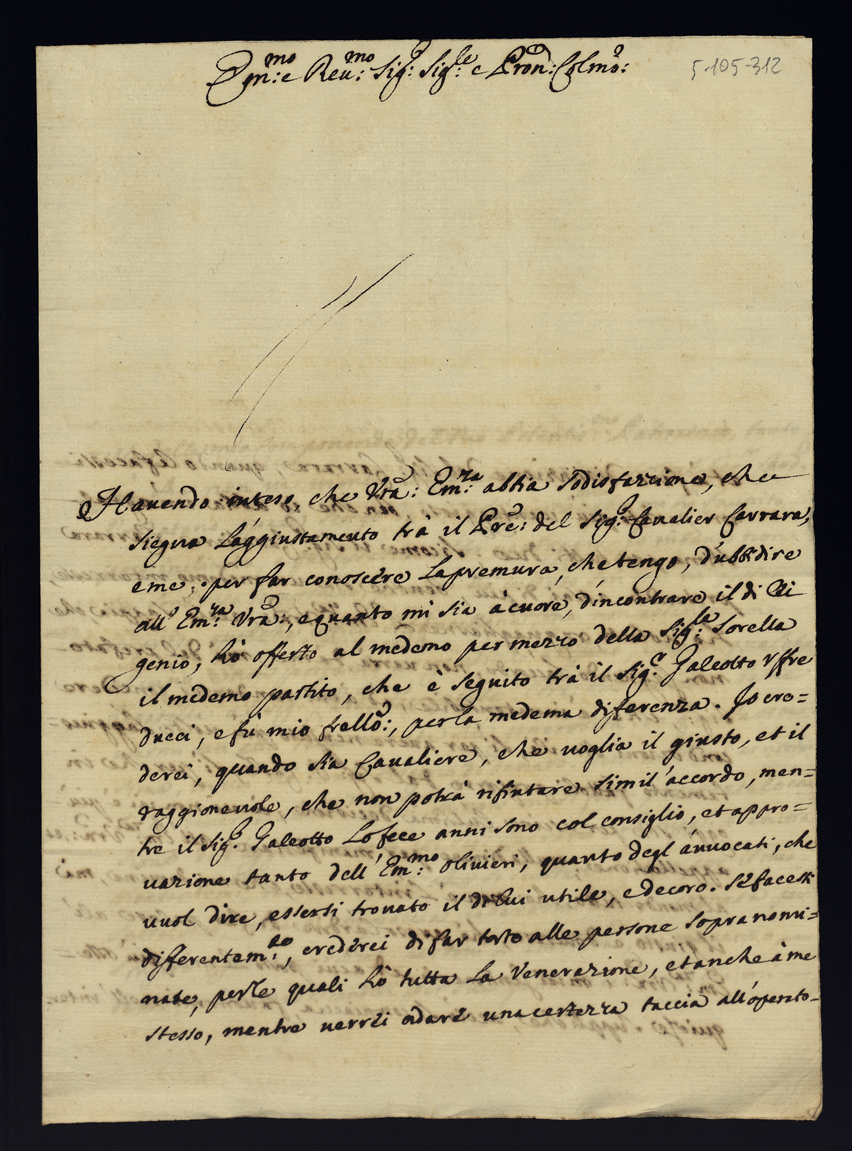 Em:mo e Reu:mo Sig:r Sig:re e Pron: Colmo:
5-105-312
Hauendo inteso, che Vra: Em:za abbia sodisfazione, che
siegua l'aggiustamento trà il Pre: del Sig:r Caualier Carrara,
e me; per far conoscere la premura, che tengo, d'ubbidire
all' Em:za Vra:, e quanto mi sia à cuore, d'incontrare il di Lei
genio, hò offerto al medemo per mezzo della Sig:la Sorella
il medemo partito, che è seguito trà il Sig:r Galeotto Vffre
ducci, e fù mio frello:, per la medema diferenza. Io cre=
derei, quando sia Caualiere, che voglia il giusto, et il
raggioneuole, che non potrà rifiutare simil' accordo, men=
tre il Sig:r Galeotto Lo fece anni sono col consiglio, et appro=
uazione tanto dell' Em:mo Oliuieri, quanto degl' auuocati, che
vuol dire, essersi trouato il di lui utile, e decoro. Se facessi
diferentem:to, crederei di far torto alle persone sopranomi=
nate, per le quali hò tutta la venerazione, et anche à me
stesso, mentre verrei a dare una certezza taccia all' operato=